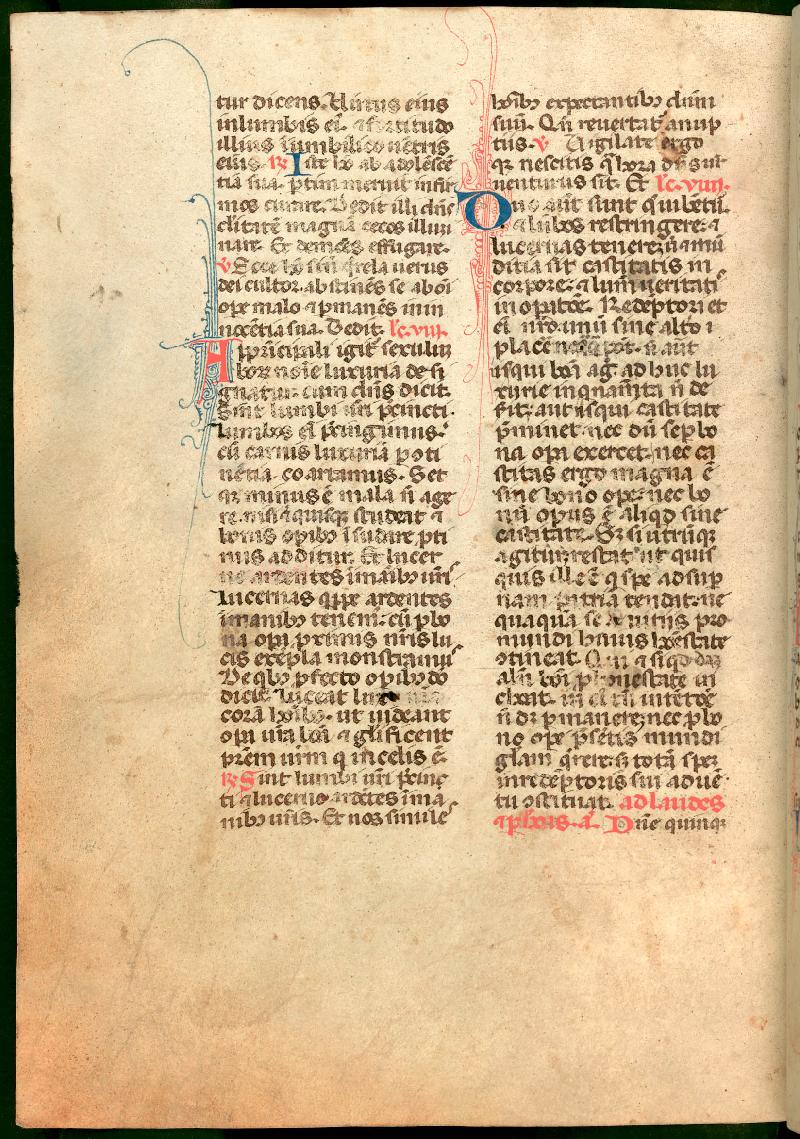 tur dicens. Uirtus eius
inlumbis eiꝰ. ⁊ fortitudo
illius inumbilico uentris
eius. ℞ Iste hō ab adolescē
tia sua. ꝑtūm meruit infir
mos curare. Dedit illi dn̄s
claritatē magnā cecos illumi
nare. Et demōes effugare.
℣ Ecce hō sn̄ q̄rela uerus
dei cultor. abstinēs se ab oī
ope malo ⁊ ꝑmanēs in in
nocētia sua. Dedit. lc̄. viij.
A pprīncipali igit᷑ sexu lum
bor noīe luxuria desi
gnatur. cum dn̄s dicit.
Sint lumbi ur̄i p̄cincti.
Lumbos eī p̄cingimus.
cū carnis luxuriā ꝑ oti
nētiā coartamus. Set
qꝛ minus ē mala n̄ age
re. nisi ⁊ quisqꝫ studeat ⁊
bonis opibꝫ īsudare. pti
nus additur. Et lucer
ne ardentes īmaībꝫ ur̄is
Lucernas q̄ꝑpe ardentes
īmanibꝫ tenem᷑. cū ꝑ bo
na oꝑa ꝓximis nr̄is lu
cis exēpla monstramus
De qbꝫ ꝓfecto opibꝫ dō
dicit. luceat lux
corā hoībꝫ. ut uideant
oꝑa ur̄a bōa ⁊ glīficent
prēm ur̄m q incelis ē.
℞ Sint lumbi ur̄i p̄cinc
ti ⁊ lucerne ardētes īma
nibꝫ ur̄is. Et nos simile
hoībꝫ expectantibꝫ dn̄m
suū. Qn̄ reuertat᷑ a nup
tiis. ℣ Uigilate ergo
qꝛ nescitis q̄ hora dn̄s ur̄
uenturus sit. Et lc̄. viiij.
Duo aūt sunt q iubētur.
⁊ lūbos restringere. ⁊
lucernas tenere. ut ⁊ mū
ditia sit castitatis in
corpore. ⁊ lum̄ ueritatis
in opatōe. Redēptori et
eī nr̄o unū sine alto
placē neq̄qā pōt. si aūt
isqui bōa ag. adhuc lu
xurie inqnamīta n̄ de
sit. aut isqui castitate
p̄minet. nec dū se ꝑ bo
na oꝑa exercet. nec ca
stitas ergo magna ē
sine bono ope. nec bo
nū opus ē aliqd sine
castitate. Sꝫ si utrūqꝫ
agitur. restat ut quis
quis ille ē q spe ad sup
nam patriā tendat. ne
quaqā se a uitiis pro
mundi huius honestate
ɔtineat. Qui ⁊ si qd
alīi bōa ꝑ honestate in
choat. in ea tn̄ intētōe
n̄ dꝫ ꝑmanere. nec ꝑ bo
no ope p̄sētis mundi
glam q̄rere. sꝫ totā spem
inredēptoris sui aduē
tu ɔstituat. ad laudes
⁊ ꝑ horis. a. Dn̄e quinqꝫ